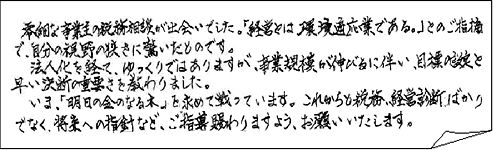 本格的な事業主の税務相談が出会いでした。「経営とは環境適応業である。」とのご指摘
で、自分の視野の狭さに驚いたものです。
法人化を経て、ゆっくりではありますが、事業規模が伸びるに伴い、目標設定と
早い決断の重要さを教わりました。
いま、「明日の金のなる木」を求めて戦っています。これからも税務、経営診断ばかり
でなく、将来への指針など、ご指導賜わりますよう、お願いいたします。